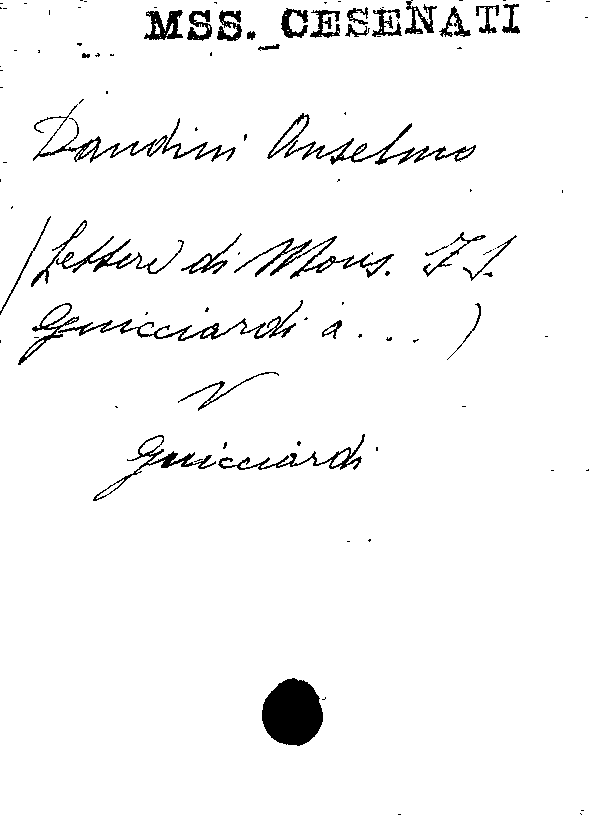 MSS. CESENATI
Dandini Anselmo
(Lettere di Mons. F. S.
Guicciardi a . . . )
V
Guicciardi